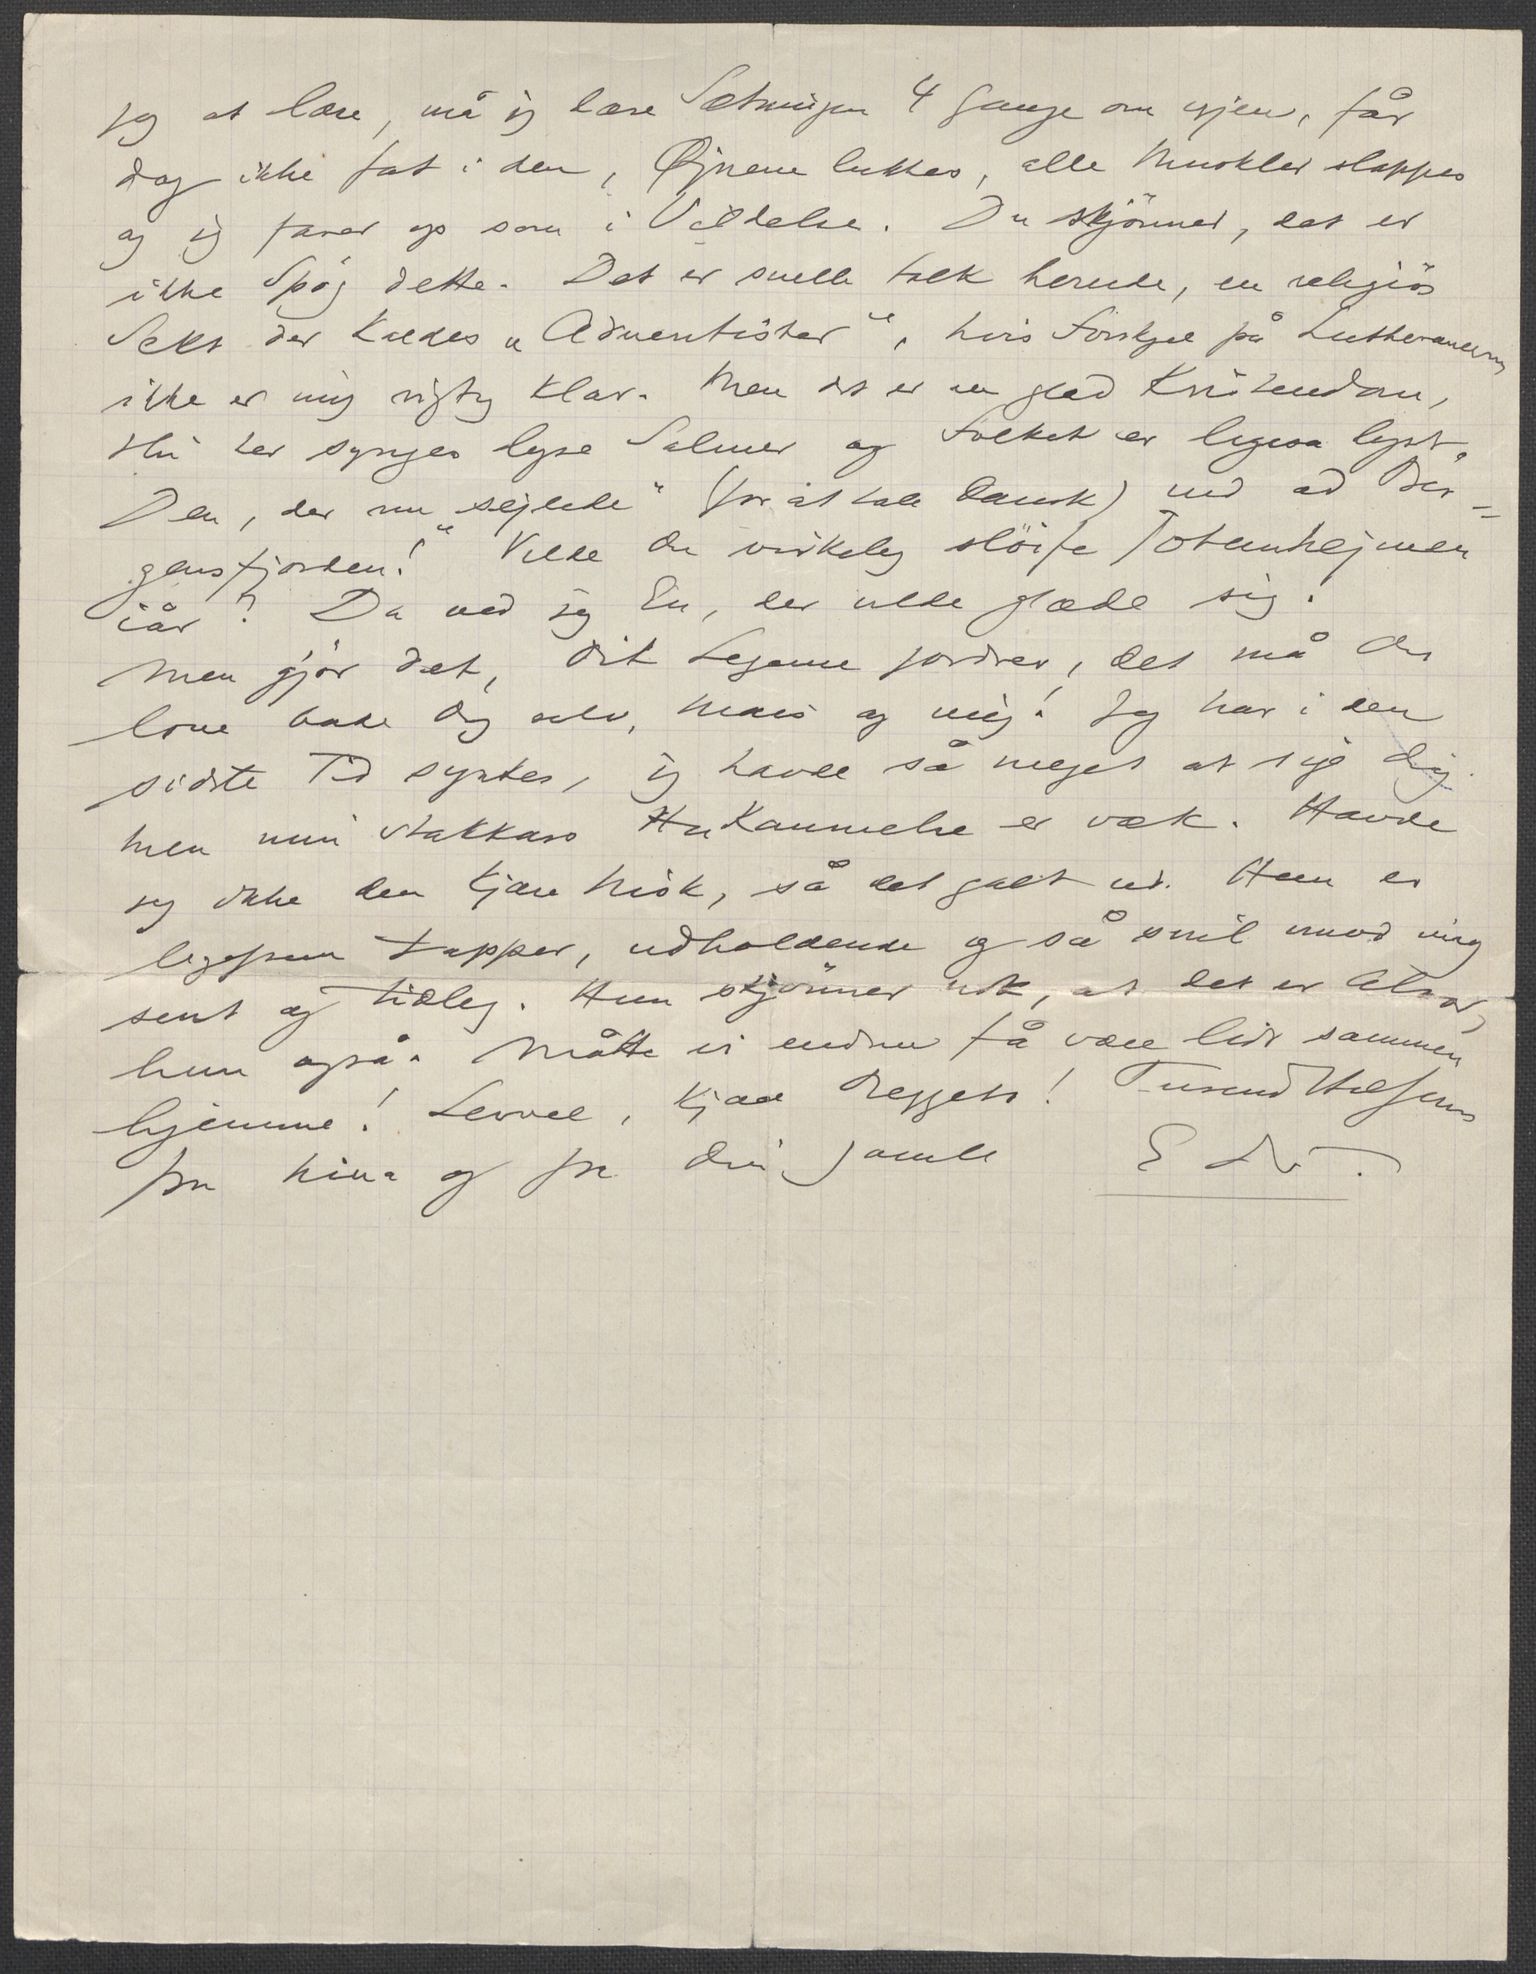 jeg at læse, må jeg læse Sætningen 4 Gange om igjen, får
dog ikke fat i den, Øjnene lukkes, alle Muskler slappes
og jeg farer op som i Vildelse. Du skjönner, det er
ikke Spög dette. Det er snille Folk herude, en religiös
Sekt der kaldes „Adventister", hvis Forskjel på Lutheranerne
ikke er mig rigtig klar. Men det er en glad Kristendom,
thi her synges lyse Salmer og Folket er ligesa lyst.
Den, der nu „sejlede" (for at tale Dansk) ind ad Ber=
gensfjorden! Vilde du virkelig slöife Jotunhejmen
iår? Da ved jeg En, der vilde glæde sig!
Men gjör det, dit Legeme fordrer, det må du
love både dig selv, Mais og mig! Jeg har i den
sidste Tid syntes, jeg havde så meget at sige dig.
Men min stakkars Hukommelse er væk. Havde
jeg ikke den kjære Misk, så det galt ud. Hun er
ligesom tapper, udholdende og så snil mod mig
sent og tidlig. Hun skjönner nok, at det er Alvor,
hun også. Måtte vi endnu få være lidt sammen
hjemme! Levvel, kjære Beggeto! Tusend Hilsener
fra Nina og fra din gamle E. G.